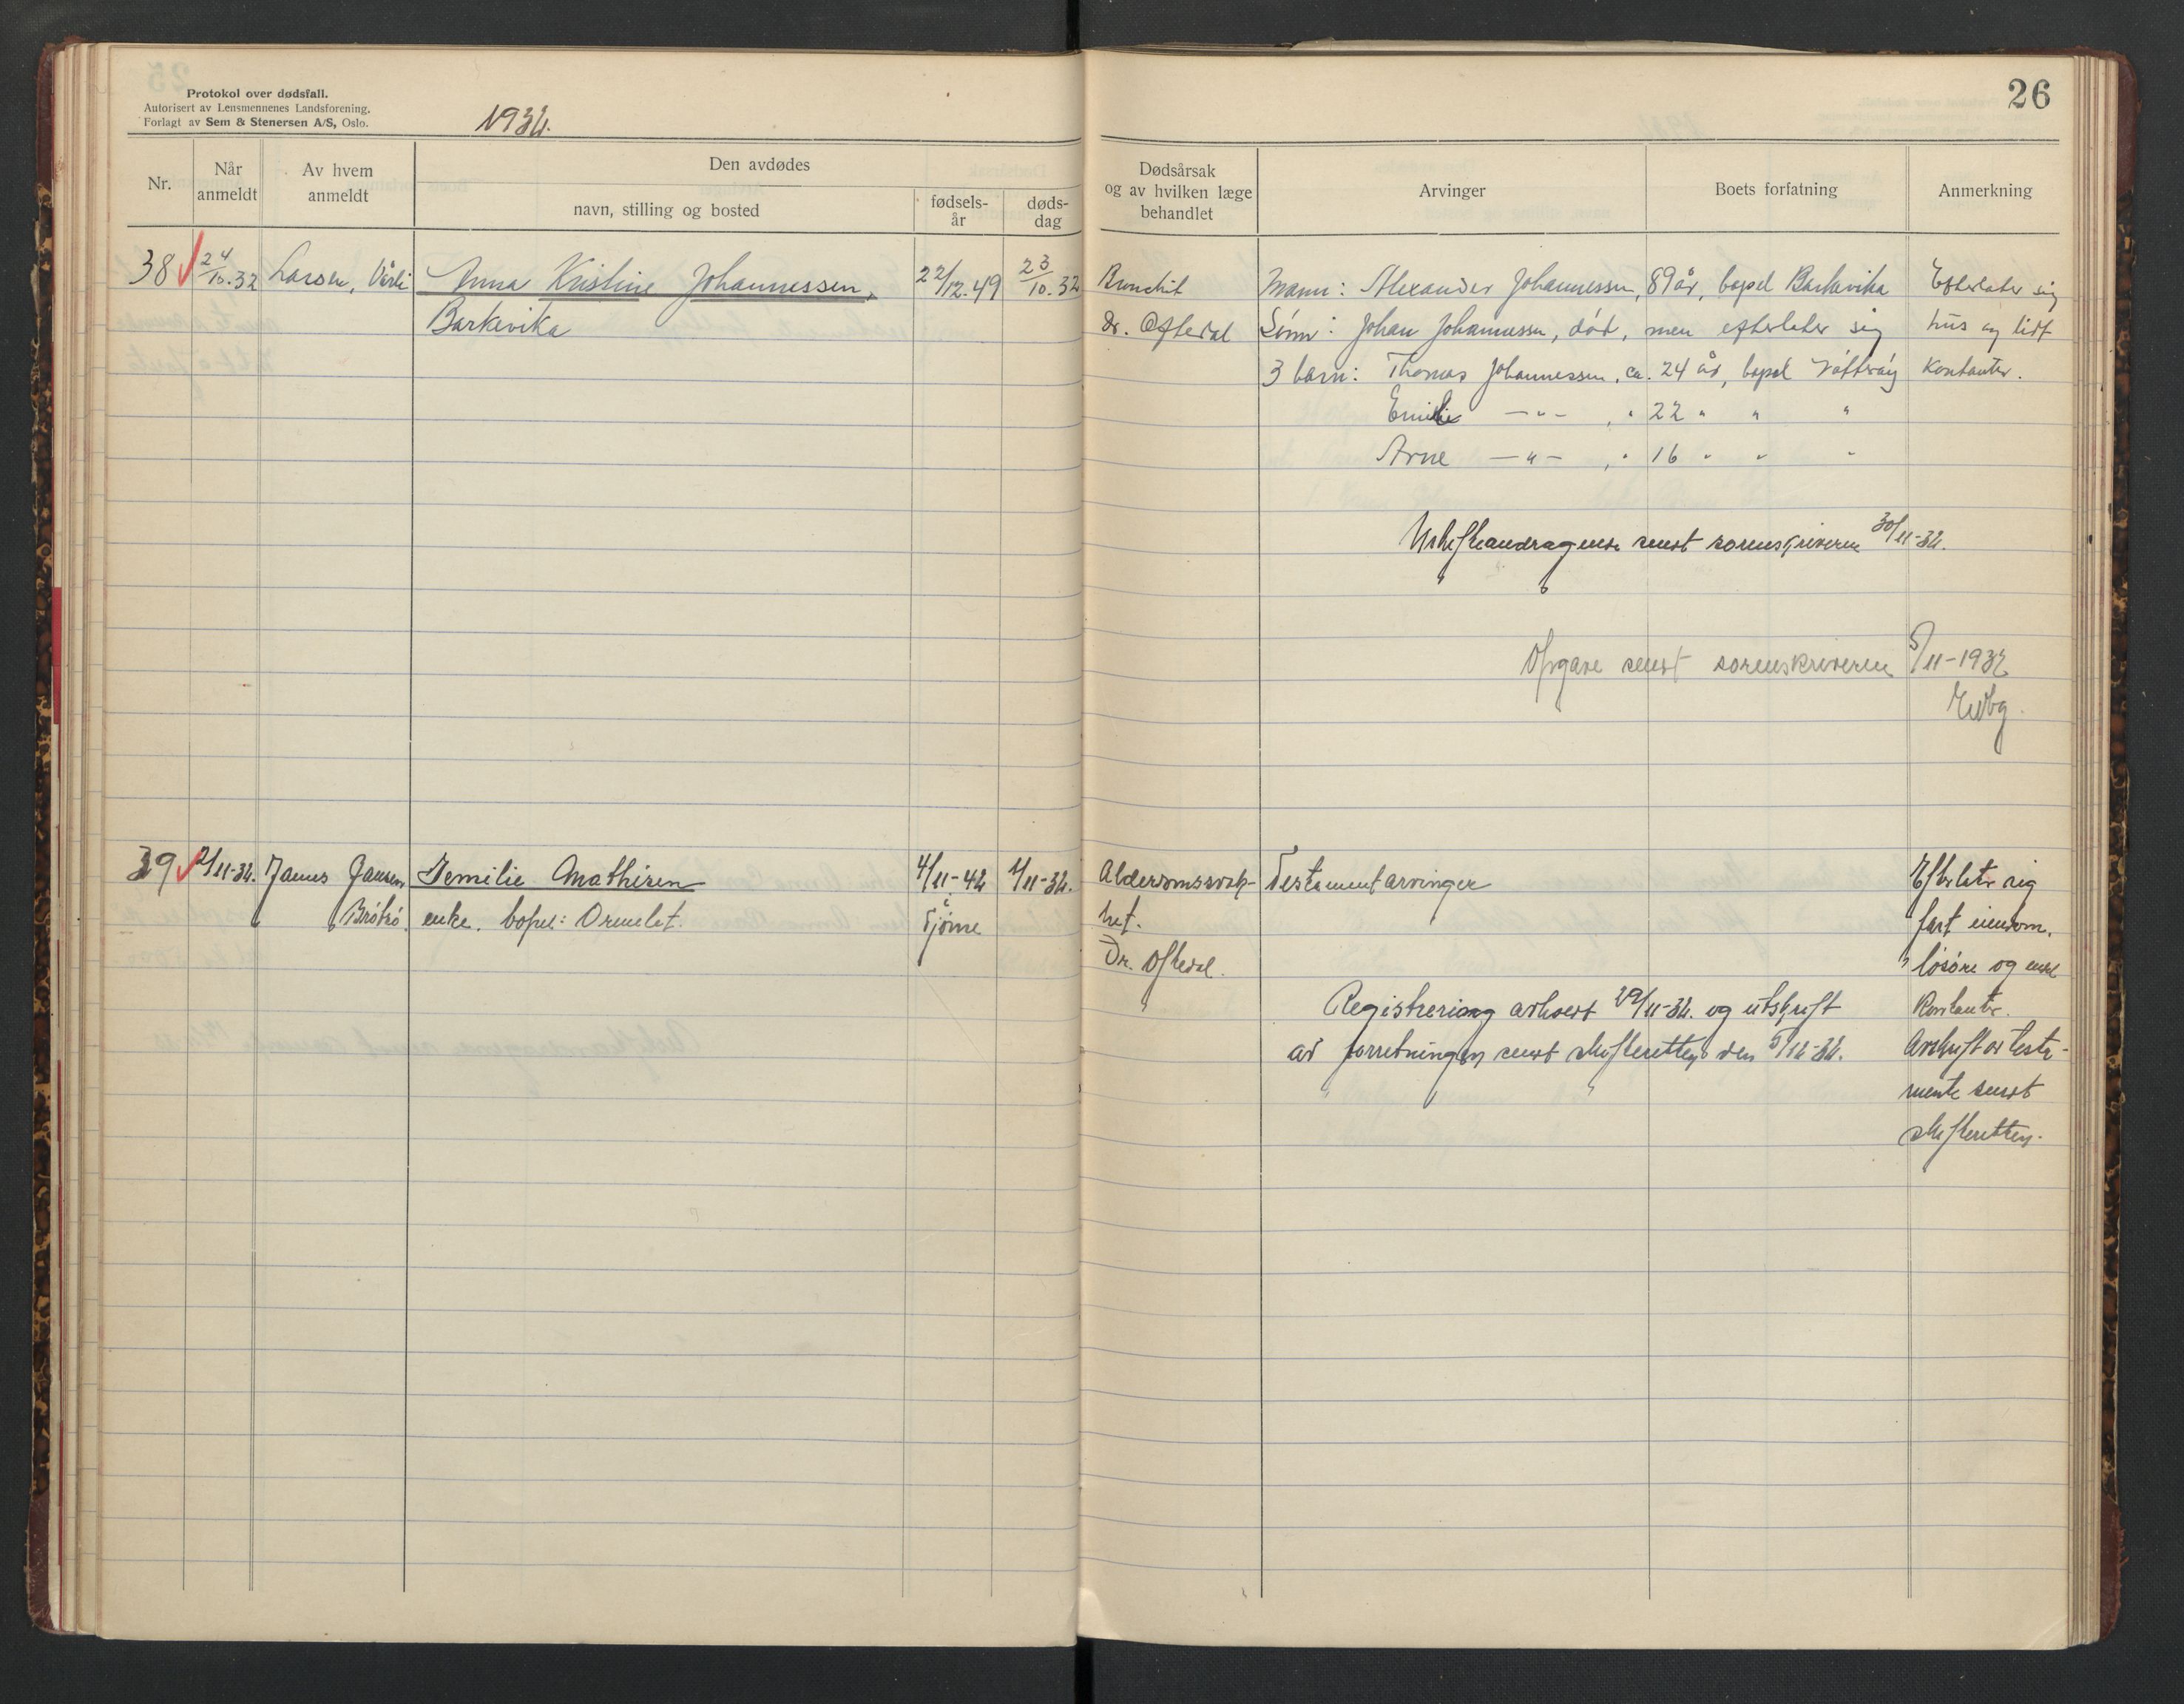 Protokol over dødsfall.
Autorisert av Lensmennenes Landsforening.
Forlagt av Sem & Stenersen A/S, Oslo.
1932.
26
Nr.
Når anmeldt
Av hvem anmeldt
Den avdødes
navn, stilling og bosted
fødselsår
dødsdag
Dødsårsak og av hvilken læge behandlet
Arvinger
Boets forfatning
Anmerkning
38 24/10.32 Larsen, Anna Kristine Johannessen, 22/12.49 23/10.32
Barkevika
Bronchit
dr. Oftedal
Mann: Alexander Johannessen, 89 år, bopel Barkevika
Sønn: Johan Johannessen, død, men efterlater sig
3 barn: Thomas Johannessen, ca. 24 år, bopel
Emilie —"— , " 22 " " "
Arne —"— , " 16 " " "
Efterlater sig
hus og lidt
kontanter.
Uskifteandragende sendt sorenskriveren 30/11-32.
Opgave sendt sorenskriveren 5/11-1932
39 2/11-32. James Jansen Jemilie Mathisen 4/11-42 1/11-32.
Brøtsø. enke. bopel: Ormelet. i Tjøme
Alderdomssvak-
het.
Dr. Oftedal.
Testamentarvinger
Registrering avholdt 29/11-32. og utskrift
av forretningen sendt skifteretten den 5/12-32.
Efterlater sig
fast eiendom,
løsøre og endel
kontanter.
Avskrift av testa-
mente sendt
skifteretten.